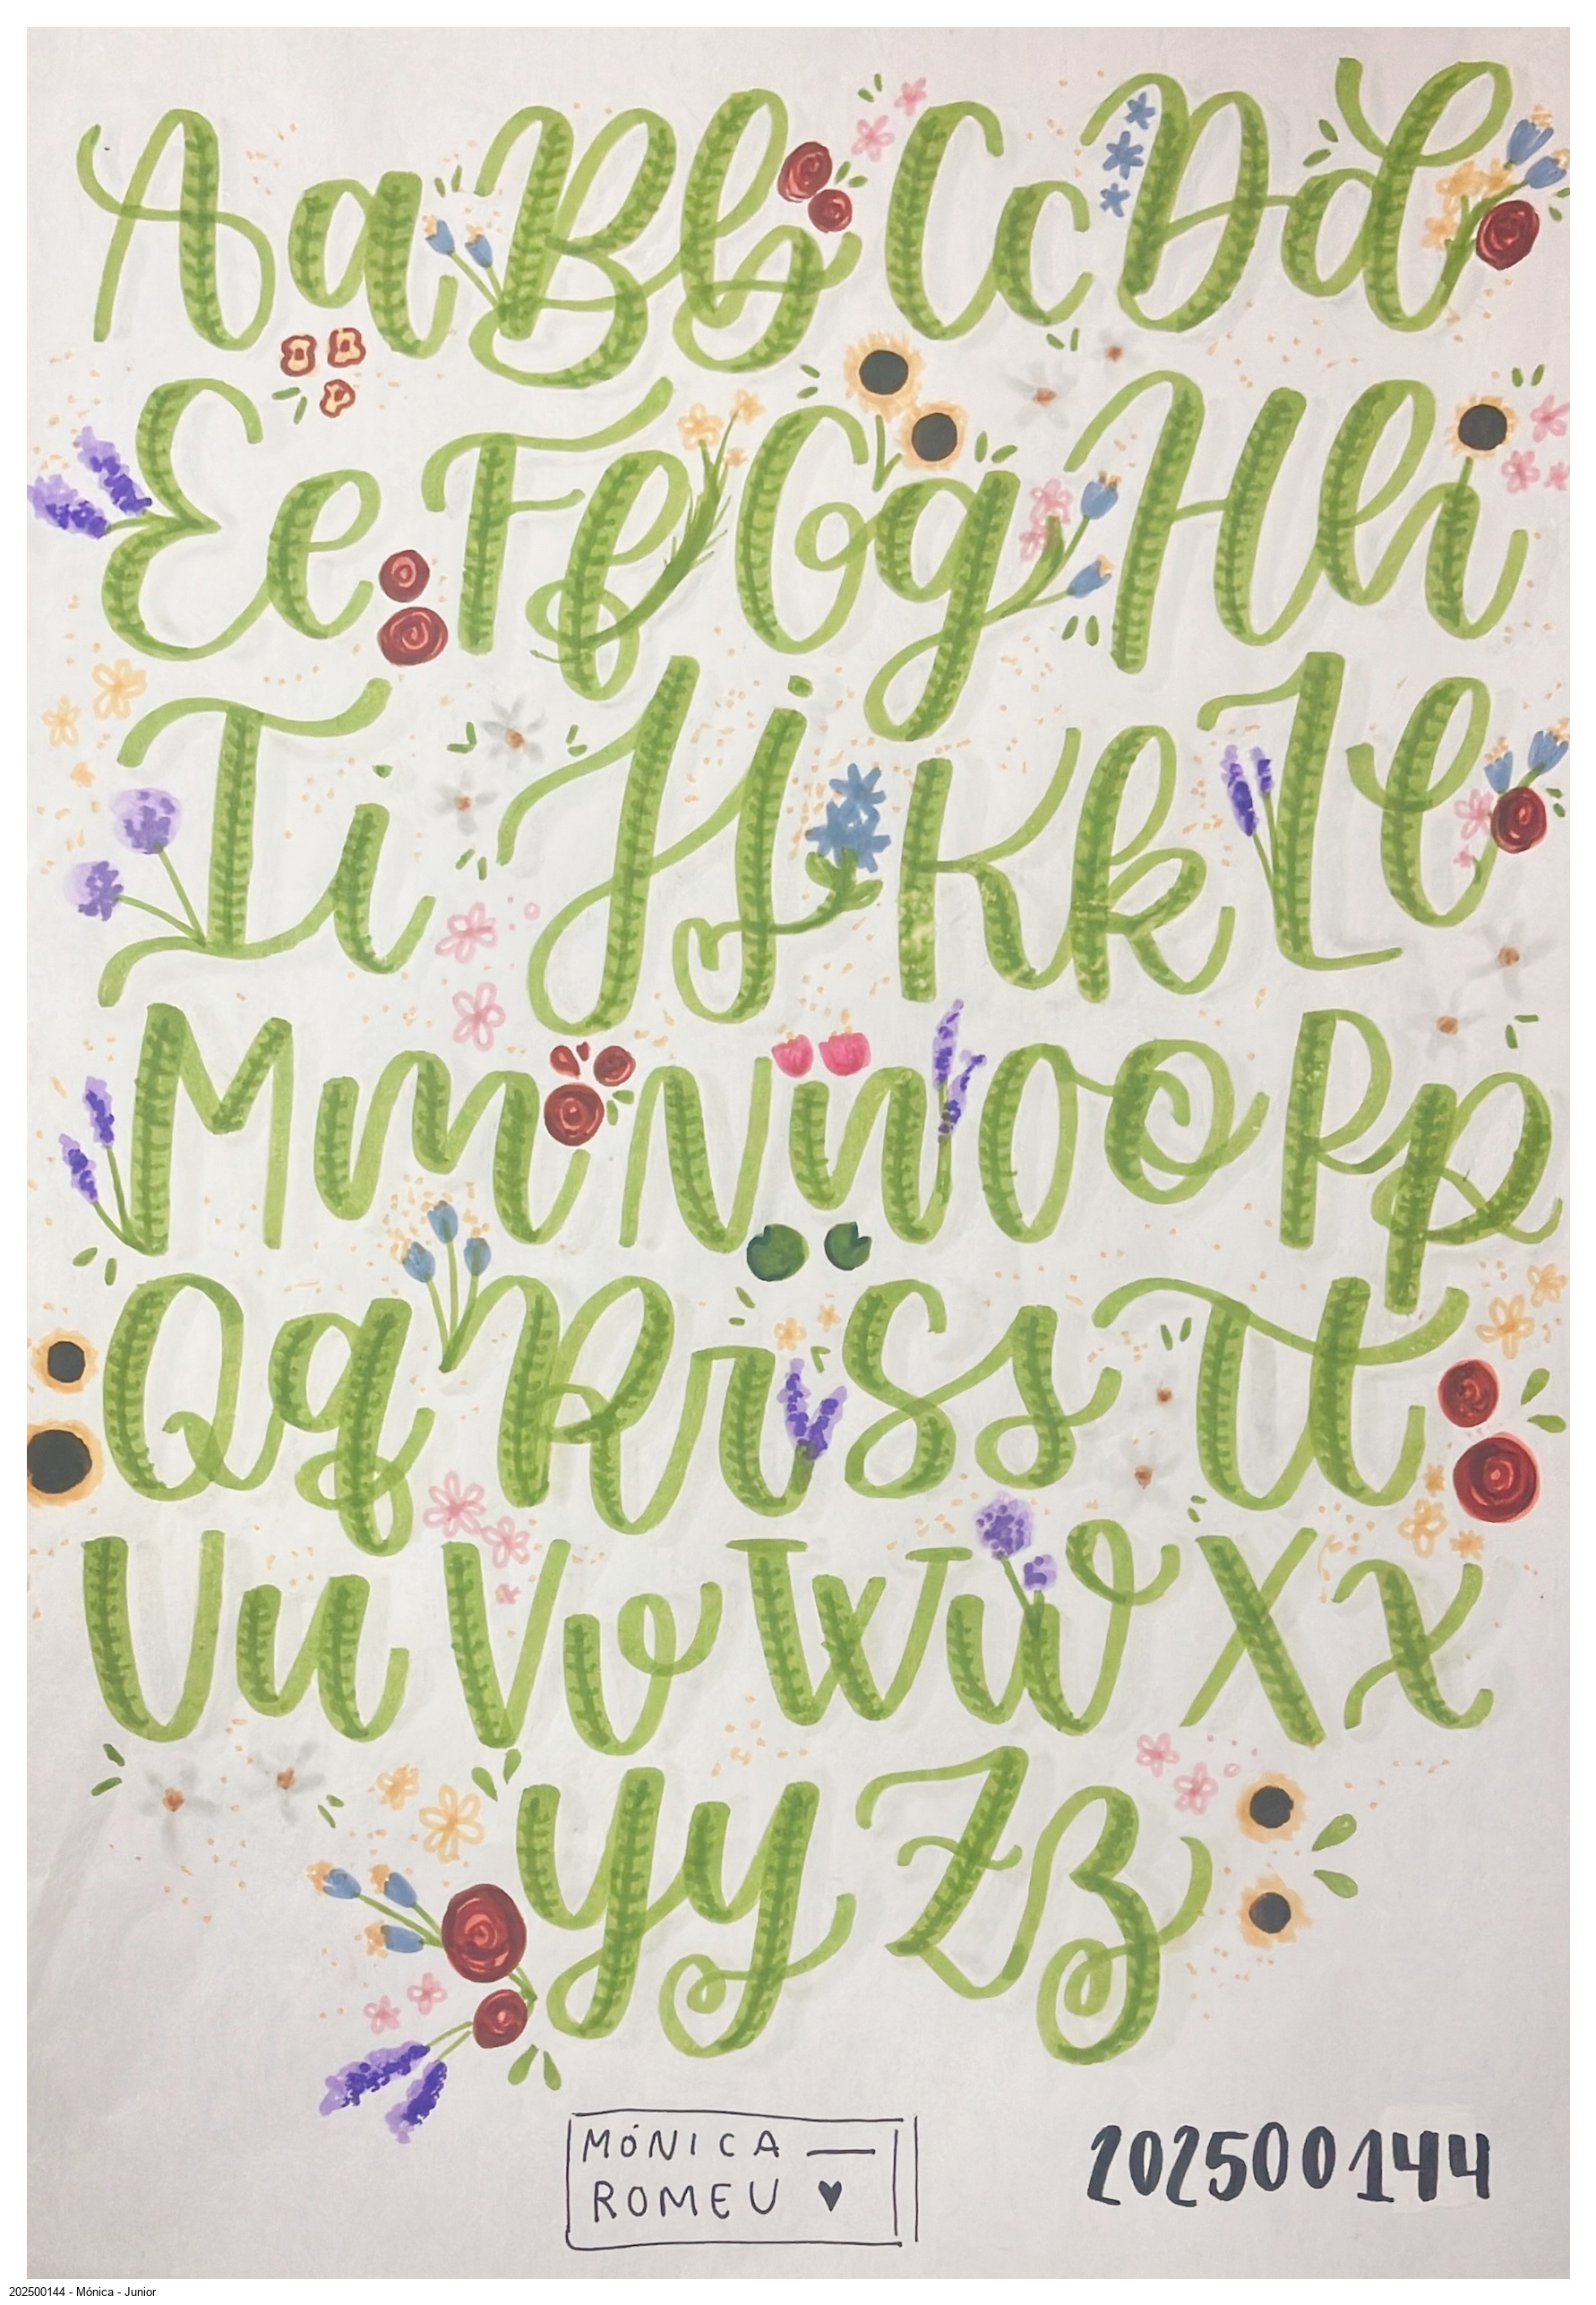 Aa Bb Cc Dd
Ee Ff Gg Hh
Ii Jj Kk Ll
Mm Nn Oo Pp
Qq Rr Ss Tt
Uu Vv Ww Xx
Yy Zz
MÓNICA —
ROMEU ♥
202500144
202500144 - Mónica - Junior